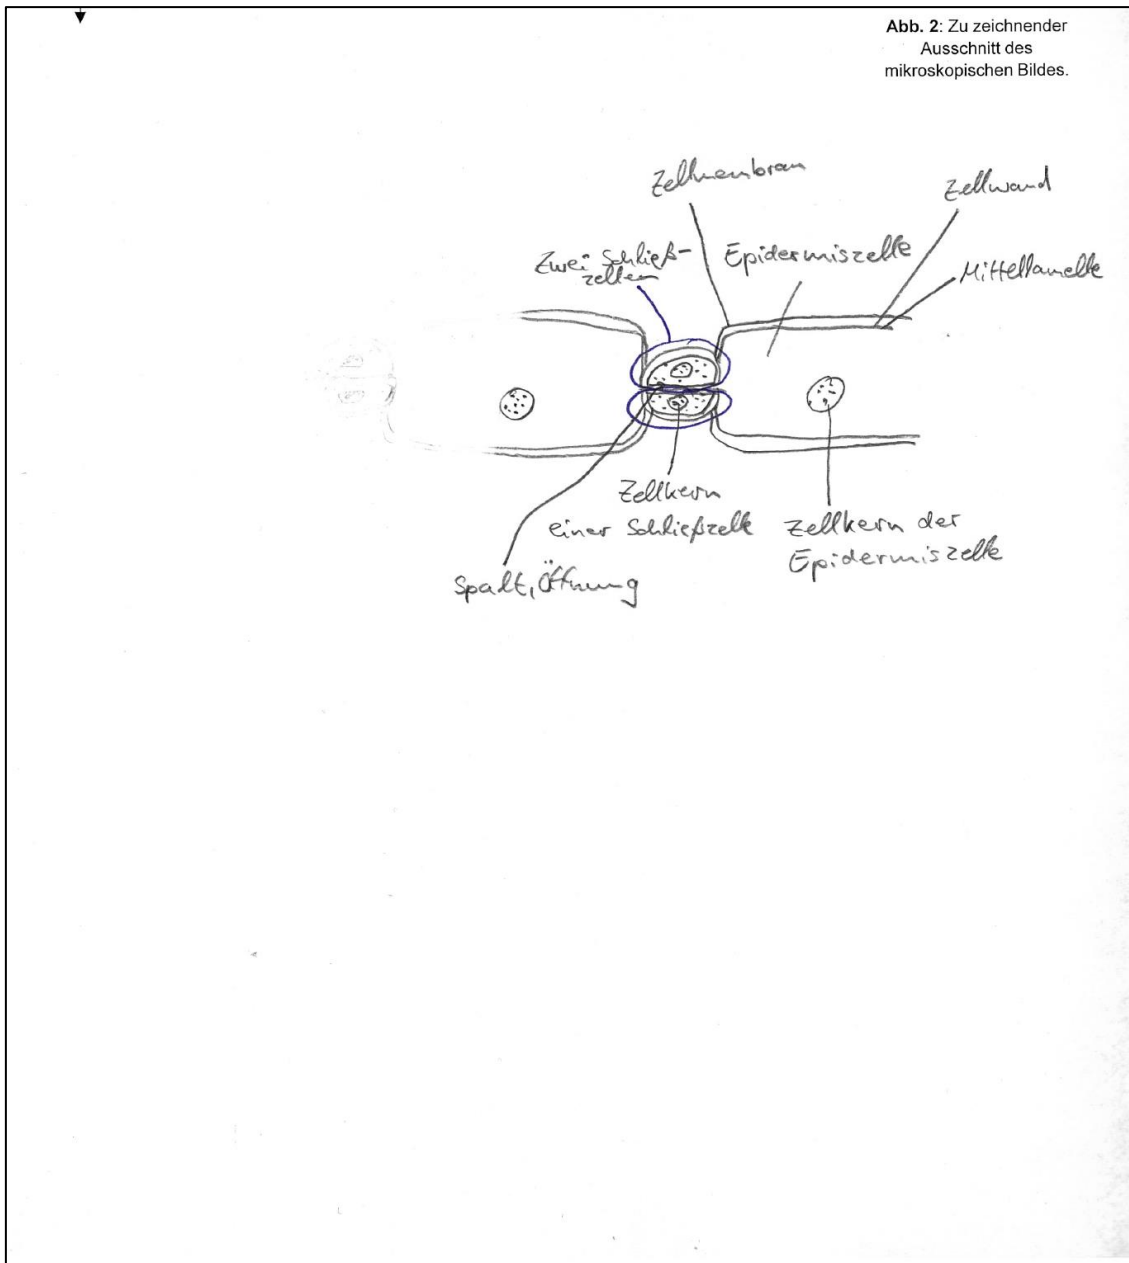 Abb. 2: Zu zeichnender
Ausschnitt des
mikroskopischen Bildes.
Zellmembran
Zellwand
Zwei Schließ-
zellen
Epidermiszelle
Mittellamelle
Zellkern
einer Schließzelle
Zellkern der
Epidermiszelle
Spalt, Öffnung